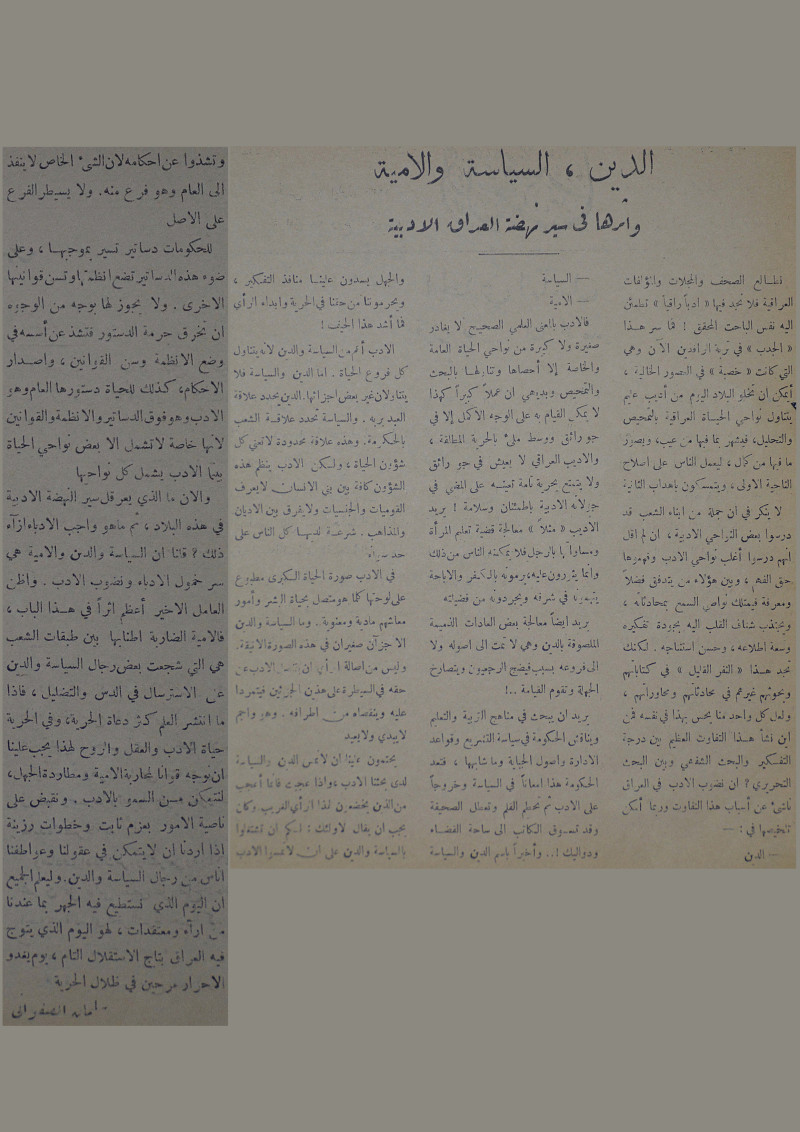 الدين ، السياسة والامية
وأثرها في سير نهضة العراق الادبية
نطالع الصحف والمجلات والمؤلفات
العراقية فلا نجد فيها « ادباً راقياً » تطمئن
اليه نفس الباحث المحقق ! فما سر هذا
« الجدب » في تربة الرافدين الآن وهي
التي كانت « خصبة » في العصور الخالية ،
أيمكن ان تخلو البلاد اليوم من أديب عليم
يتناول نواحي الحياة العراقية بالتمحيص
والتحليل، فيشهر بما فيها من عيب، ويصور
ما فيها من كمال ، ليعمل الناس على اصلاح
الناحية الاولى ، ويتمسكون باهداب الثانية
لا ينكر في ان جملة من ابناء الشعب قد
درسوا بعض النواحي الادبية ، ان لم اقل
انهم درسوا أغلب نواحي الادب وفهموها
حق الفهم ، وبين هؤلاء من يتدفق فضلاً
ومعرفة فيمتلك نواصي السمع بمحادثاته ،
ويجتذب شغاف القلب اليه بجودة تفكيره
وسعة اطلاعه ، وحسن استنتاجه . لكنك
تجد هذا « النفر القليل » في كتاباتهم
وبحوثهم غيرهم في محادثاتهم ومحاوراتهم ،
ولعل كل واحد منا يحس بهذا في نفسه فمن
اين نشأ هذا التفاوت العظيم بين درجة
التفكير والبحث الشفهي وبين البحث
التحريري ؟ ان نضوب الادب في العراق
ناشئ عن أسباب هذا التفاوت وربما أمكن
تلخيصها في : —
— الدين
— السياسة
— الامية
فالادب بالمعنى العلمي الصحيح لا يغادر
صغيرة ولا كبيرة من نواحي الحياة العامة
والخاصة إلا أحصاها وتناولها بالبحث
والتمحيص وبديهي ان عملاً كبيراً كهذا
لا يمكن القيام به على الوجه الاكمل إلا في
جو رائق ووسط مليء بالحرية المطلقة ،
والاديب العراقي لا يعيش في جو رائق
ولا يتمتع بحرية تامة تعينه على المضي في
جولاته الادبية باطمئنان وسلامة ! يريد
الاديب « مثلاً » معالجة قضية تعليم المرأة
ومساواتها بالرجل فلا يمكنه الناس من ذلك
وانما يثورون عليه، يرمونه بالكفر والاباحة
يتهمونه في شرفه ويجردونه من فضيلته
يريد ايضاً معالجة بعض العادات الذميمة
الملصوقة بالدين وهي لا تمت الى اصوله ولا
الى فروعه بسبب فيضج الرجعيون ويتصارخ
الجهلة وتقوم القيامة ..!
يريد ان يبحث في مناهج التربية والتعليم
ويناقش الحكومة في سياسة التشريع وقواعد
الادارة واصول الجباية وما شابهها ، فتعد
الحكومة هذا امعاناً في السياسة وخروجاً
على الادب ثم تحطم القلم وتعطل الصحيفة
وقد تسوق الكاتب الى ساحة القضاء
ودواليك !.. وأخيراً باسم الدين والسياسة
والجهل يسدون علينا منافذ التفكير ،
ويحرموننا من حقنا في الحرية وابداء الرأي
فما أشد هذا الحيف !
الادب أعم من السياسة والدين لانه يتناول
كل فروع الحياة . اما الدين والسياسة فلا
يتناولان غير بعض اجزائها. الدين يحدد علاقة
العبد بربه . والسياسة تحدد علاقة الشعب
بالحكومة. وهذه علاقة محدودة لا تعني كل
شؤون الحياة ، ولكن الادب ينظم هذه
الشؤون كافة بين بني الانسان لا يعرف
القوميات والجنسيات ولا يفرق بين الاديان
والمذاهب . شرعة لديها كل الناس على
حد سواء
في الادب صورة الحياة الكبرى مطبوع
على لوحتها كل ما هو متصل بحياة البشر وأمور
معاشهم مادية ومعنوية.. وما السياسة والدين
الا جزآن صغيران في هذه الصورة الانيقة.
وليس من اصالة الرأي ان الادب عن
حقه في السيطرة على هذين الجزئين فيتمردا
عليه وينفصلا من اطرافه . وهو واجم
لا يبدي ولا يعيد
يحتمون علينا ان لا نمس الدين والسياسة
لدى بحثنا الادب ، واذا عجبت فانما أعجب
من الذين يخضعون لهذا الرأي الغريب وكان
يجب ان يقال لاولئك : لكم ان تشتغلوا
بالسياسة والدين على ان لا تمسوا الادب
وتشذوا عن احكامه لان الشيء الخاص لا ينفذ
الى العام وهو فرع منه. ولا يسيطر الفرع
على الاصل
للحكومات دساتير تسير بموجبها ، وعلى
ضوء هذه الدساتير تضع انظمتها وتسن قوانينها
الاخرى . ولا يجوز لها بوجه من الوجوه
ان تخرق حرمة الدستور فتشذ عن أسسه في
وضع الانظمة وسن القوانين ، واصدار
الاحكام، كذلك للحياة دستورها العام وهو
الادب وهو فوق الدساتير والانظمة والقوانين
لانها خاصة لا تشمل الا بعض نواحي الحياة
بينما الادب يشمل كل نواحيها
والان ما الذي يعرقل سير النهضة الادبية
في هذه البلاد ، ثم ما هو واجب الادباء ازآء
ذلك ؟ قلنا ان السياسة والدين والامية هي
سر خمول الادباء ونضوب الادب . واظن
العامل الاخير أعظم اثراً في هذا الباب ،
فالامية الضاربة اطنابها بين طبقات الشعب
هي التي شجعت بعض رجال السياسة والدين
على الاسترسال في الدس والتضليل ، فاذا
ما انتشر العلم كثر دعاة الحرية، وفي الحرية
حياة الادب والعقل والروح لهذا يجب علينا
ان نوجه قوانا لمحاربة الامية ومطاردة الجهل،
لنتمكن من السمو بالادب . ونقبض على
ناصية الامور بعزم ثابت وخطوات رزينة
اذا اردنا ان لا يتمكن في عقولنا وعواطفنا
اناس من رجال السياسة والدين. وليعلم الجميع
ان اليوم الذي نستطيع فيه الجهر بما عندنا
من ارآء ومعتقدات ، لهو اليوم الذي يتوج
فيه العراق بتاج الاستقلال التام ، يوم يغدو
الاحرار مرحين في ظلال الحرية